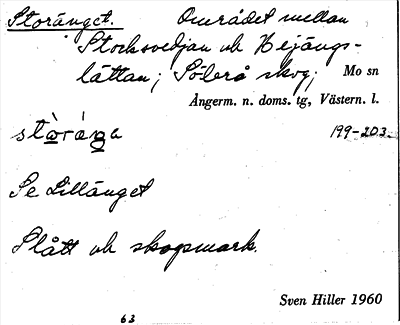 Storänget. Området mellan
Stocksvedjan och Hejängs-
låttan; Sölerå skog; Mo sn
Ångerm. n. doms. tg, Västern. l.
199-203.
Se Lillänget
Slått och skogsmark.
Sven Hiller 1960
63